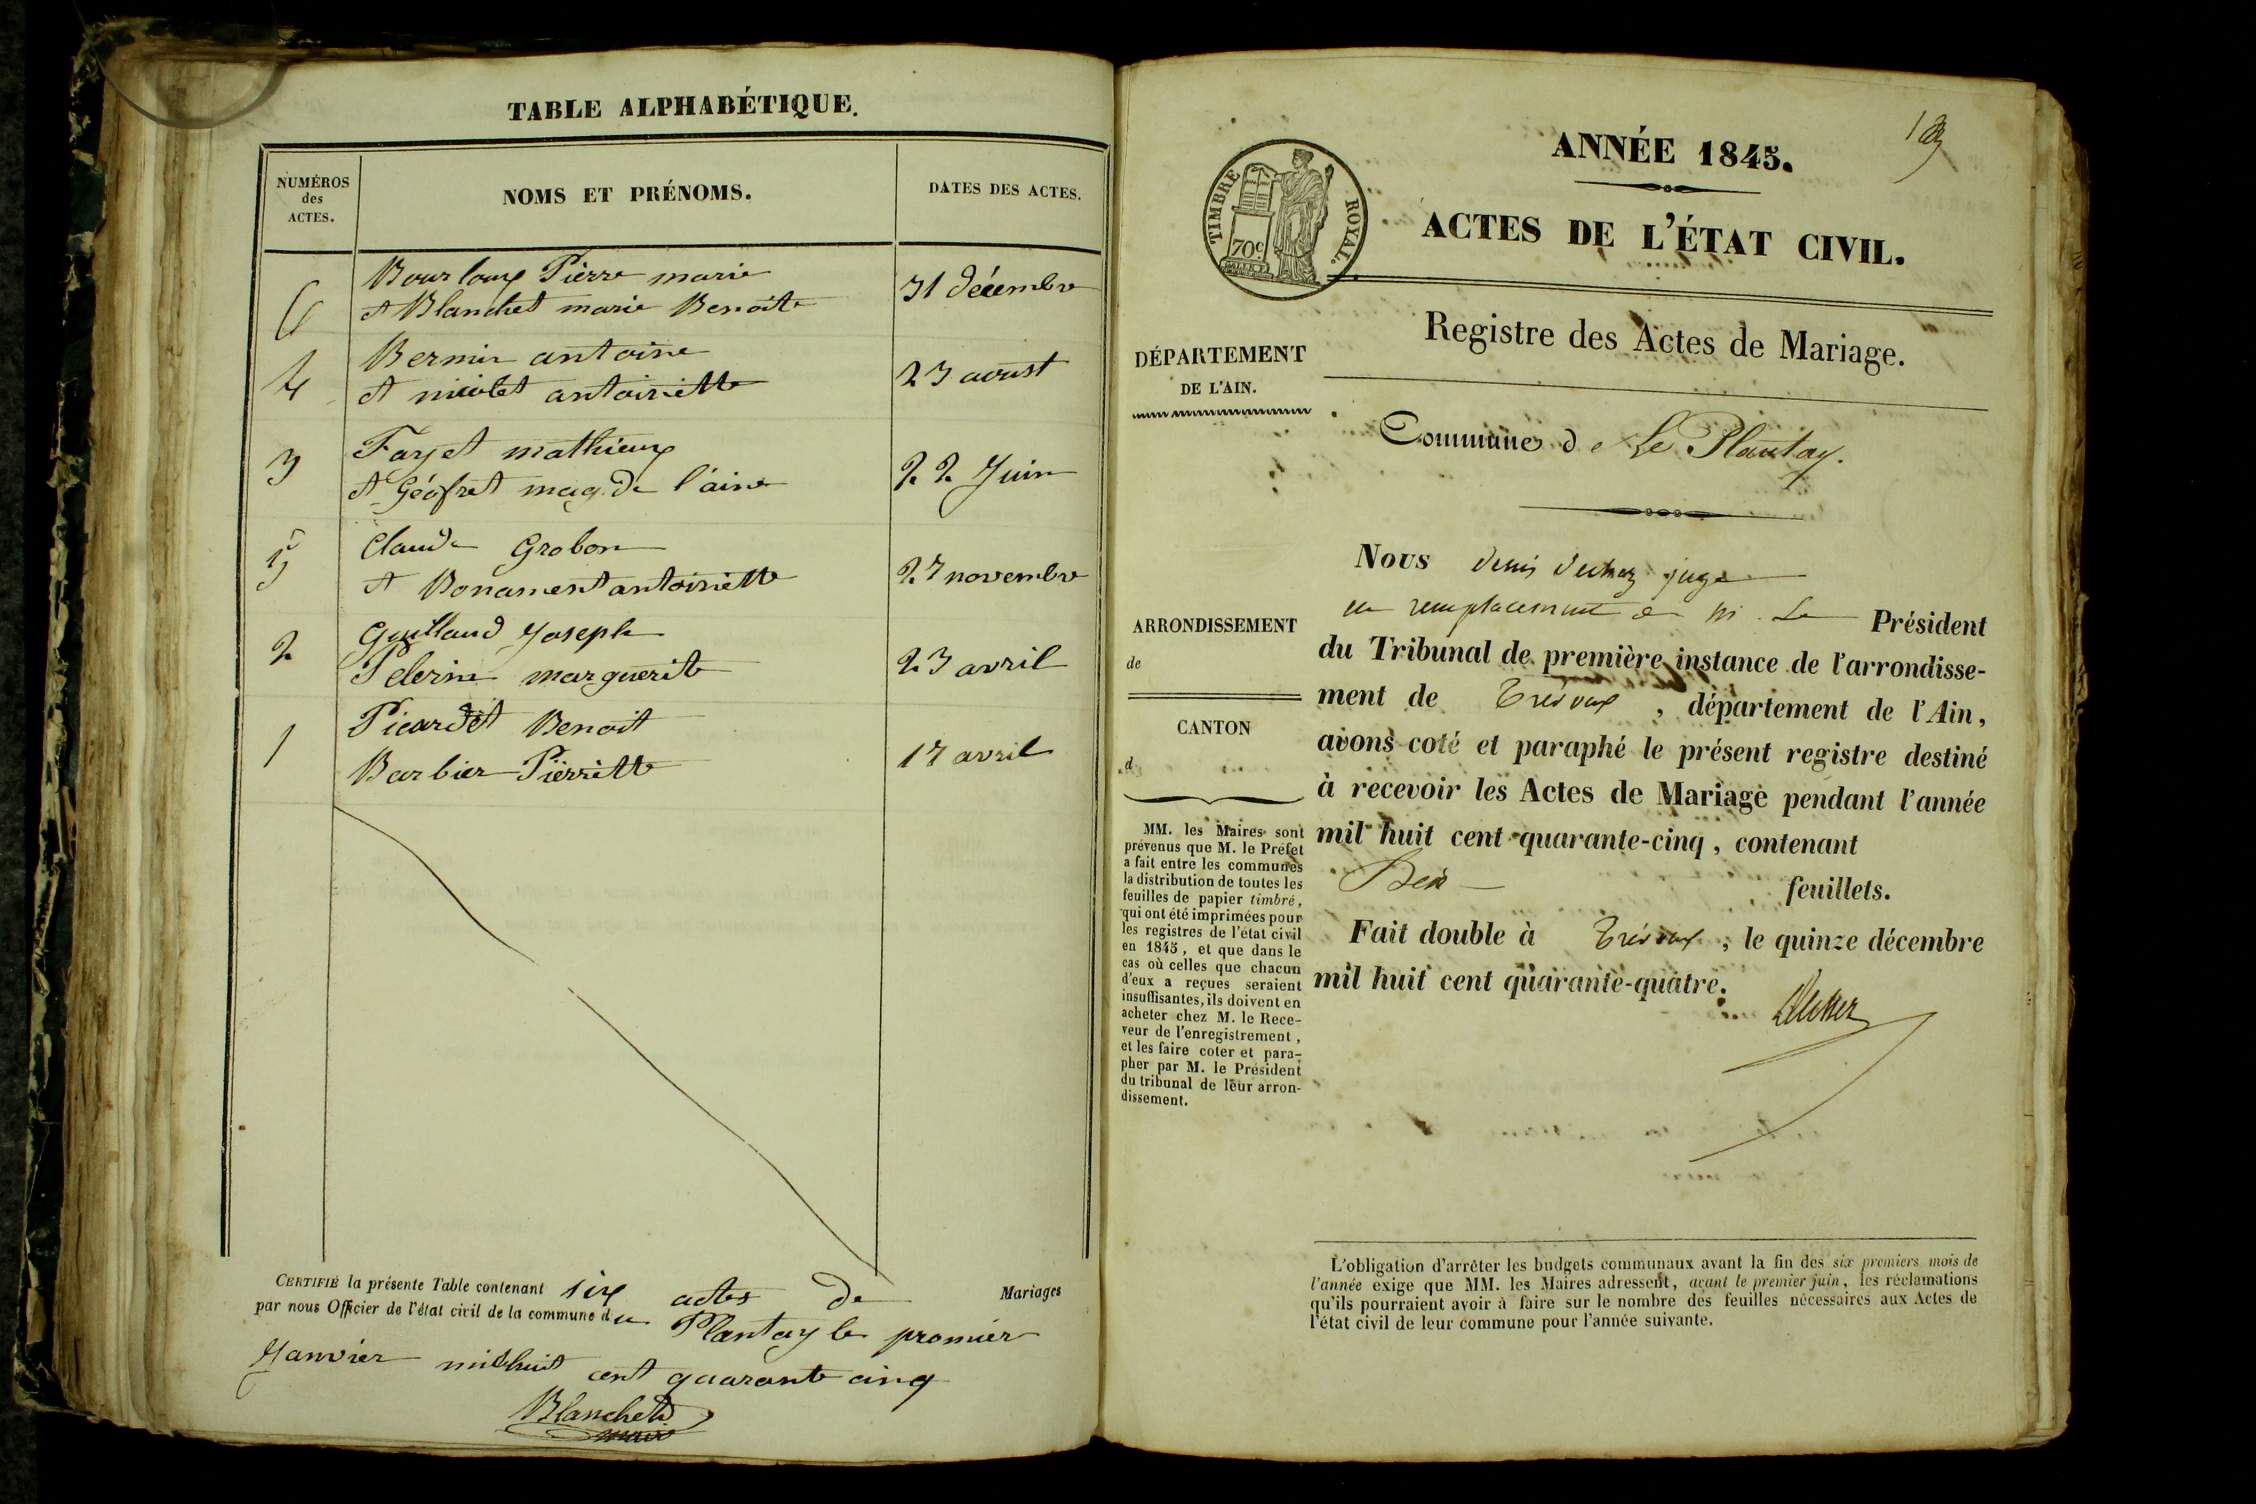 TABLE ALPHABÉTIQUE.
NUMÉROS
des
ACTES.
NOMS ET PRÉNOMS.
DATES DES ACTES.
6
Bourloux Pierre marie
et Blanchet marie Benoite
31 décembre
4
Bernin antoine
et nicolet antoinette
23 avust
3
Fayet mathieux
et Géofret mag.de l'aine
22 Juin
5
Claude Grobon
et Bonament antoinette
27 novembre
2
Guilland Joseph
Pelerin marguerite
23 avril
1
Picardet Benoit
Barbier Pierrette
17 avril
CERTIFIÉ la présente Table contenant six actes de Mariages
par nous Officier de l'état civil de la commune du Plantay le premier
Janvier mil huit cent quarante cinq
Blanchet
maire
ANNÉE 1845.
TIMBRE ROYAL.
70c
ACTES DE L'ÉTAT CIVIL.
Registre des Actes de Mariage.
DÉPARTEMENT
DE L'AIN.
Commune de Le Plantay.
Nous denis juge
en remplacement de M. Le Président
du Tribunal de première instance de l'arrondisse-
ment de Trévoux, département de l'Ain,
avons coté et paraphé le présent registre destiné
à recevoir les Actes de Mariage pendant l'année
mil huit cent quarante-cinq, contenant
feuillets.
Fait double à Trévoux, le quinze décembre
mil huit cent quarante-quatre.
ARRONDISSEMENT
de
CANTON
d
MM. les Maires sont
prévenus que M. le Préfet
a fait entre les communes
la distribution de toutes les
feuilles de papier timbré,
qui ont été imprimées pour
les registres de l'état civil
en 1845, et que dans le
cas où celles que chacun
d'eux a reçues seraient
insuffisantes, ils doivent en
acheter chez M. le Rece-
veur de l'enregistrement,
et les faire coter et para-
pher par M. le Président
du tribunal de leur arron-
dissement.
L'obligation d'arrêter les budgets communaux avant la fin des six premiers mois de
l'année exige que MM. les Maires adressent, avant le premier juin, les réclamations
qu'ils pourraient avoir à faire sur le nombre des feuilles nécessaires aux Actes de
l'état civil de leur commune pour l'année suivante.